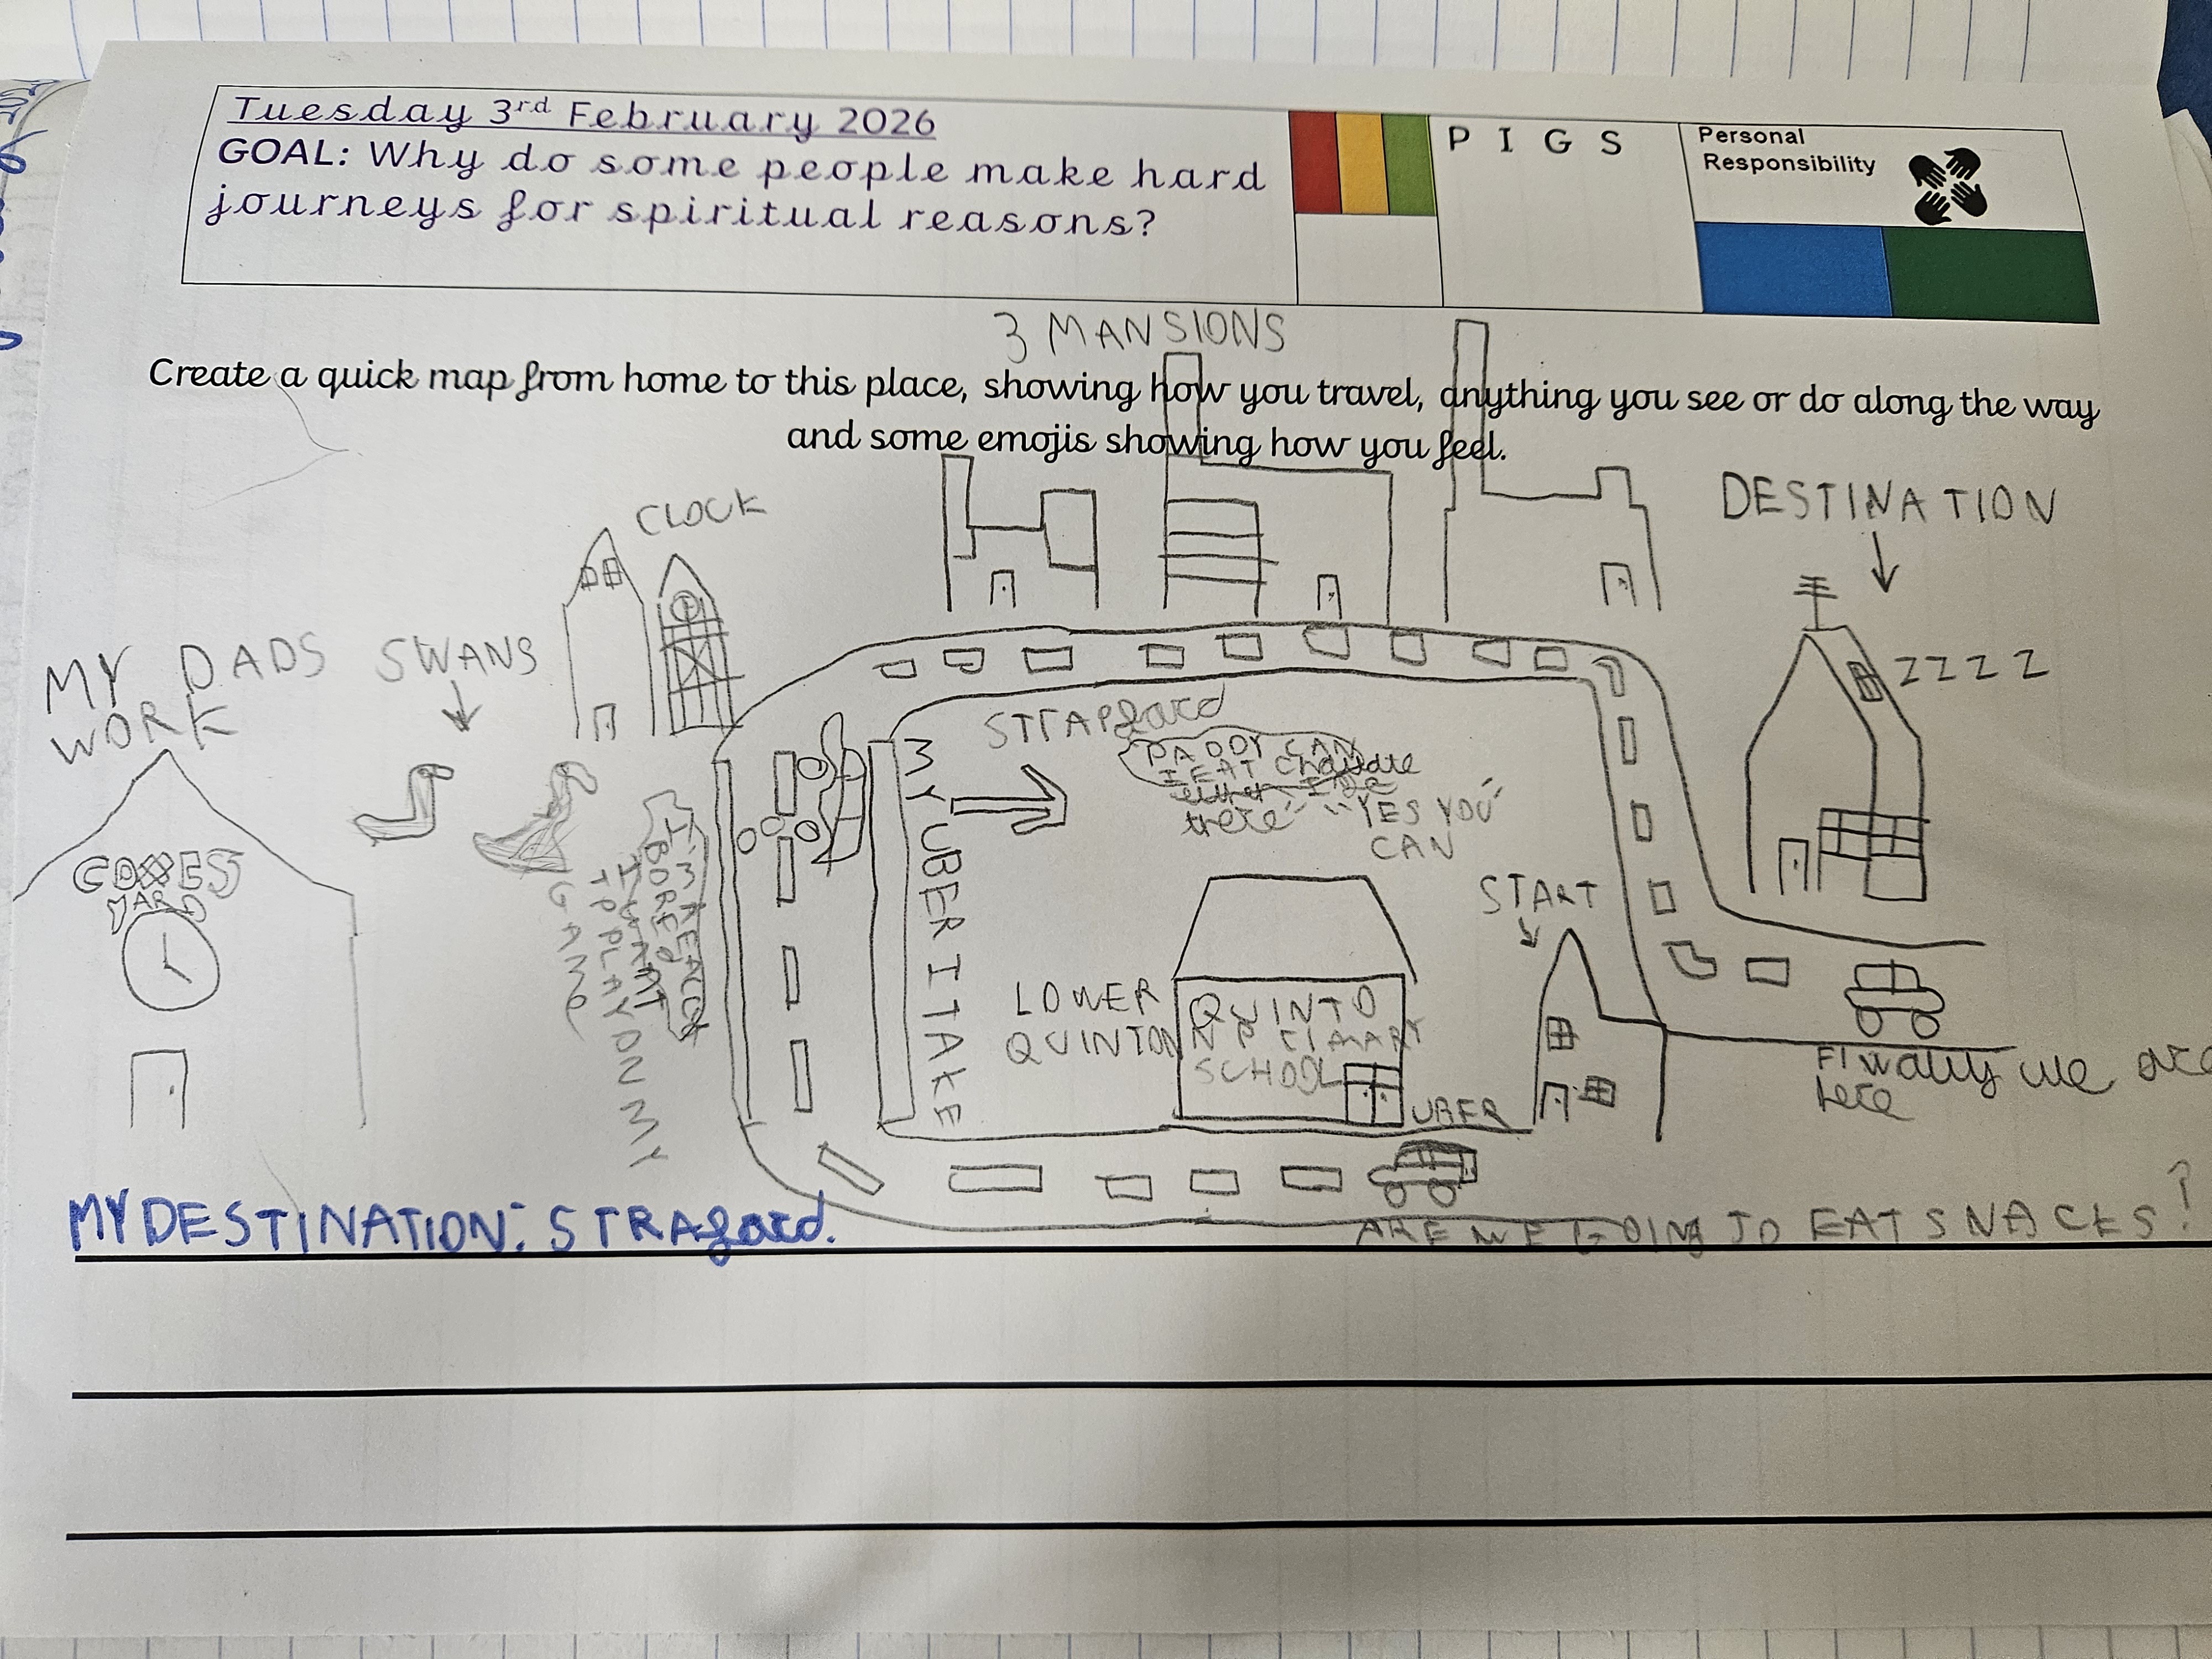 Tuesday 3rd February 2026
GOAL: Why do some people make hard
journeys for spiritual reasons?
P I G S
Personal
Responsibility
3 MANSIONS
Create a quick map from home to this place, showing how you travel, anything you see or do along the way
and some emojis showing how you feel.
CLOCK
DESTINATION
MY DADS
WORK
SWANS
ZZZZ
STRAPford
PADDY CAN
I EAT
there"
"YES YOU"
CAN
MY UBER I TAKE
COXES
YARD
I'M REALLY
BORED
I WANT
TO PLAY ON MY
GAME
START
LOWER
QUINTON
QUINTO
N PRIMARY
SCHOOL
UBER
FINally we are
here
MY DESTINATION: STRAford.
ARE WE GOING TO EAT SNACKS?